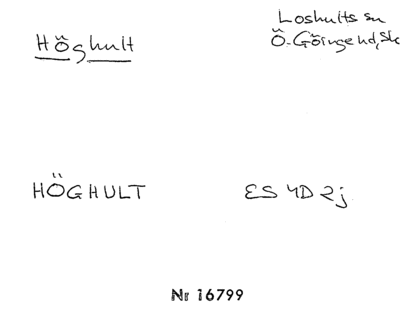 Höghult
Loshults sn
Ö. Göinge hd, Sk
HÖGHULT
ES 4D 2j
Nr 16799